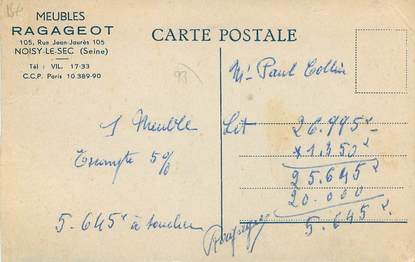 MEUBLES
RAGAGEOT
105, Rue Jean-Jaurès 105
NOISY-LE-SEC (Seine)
Tél : VIL. 17-33
C.C.P. Paris 10.389-90
93
1 Meuble
Escompte 5%
5.645 à toucher
CARTE POSTALE
Mr Paul Collin
Lit 26.995
1.350
25.645
20.000
5.645